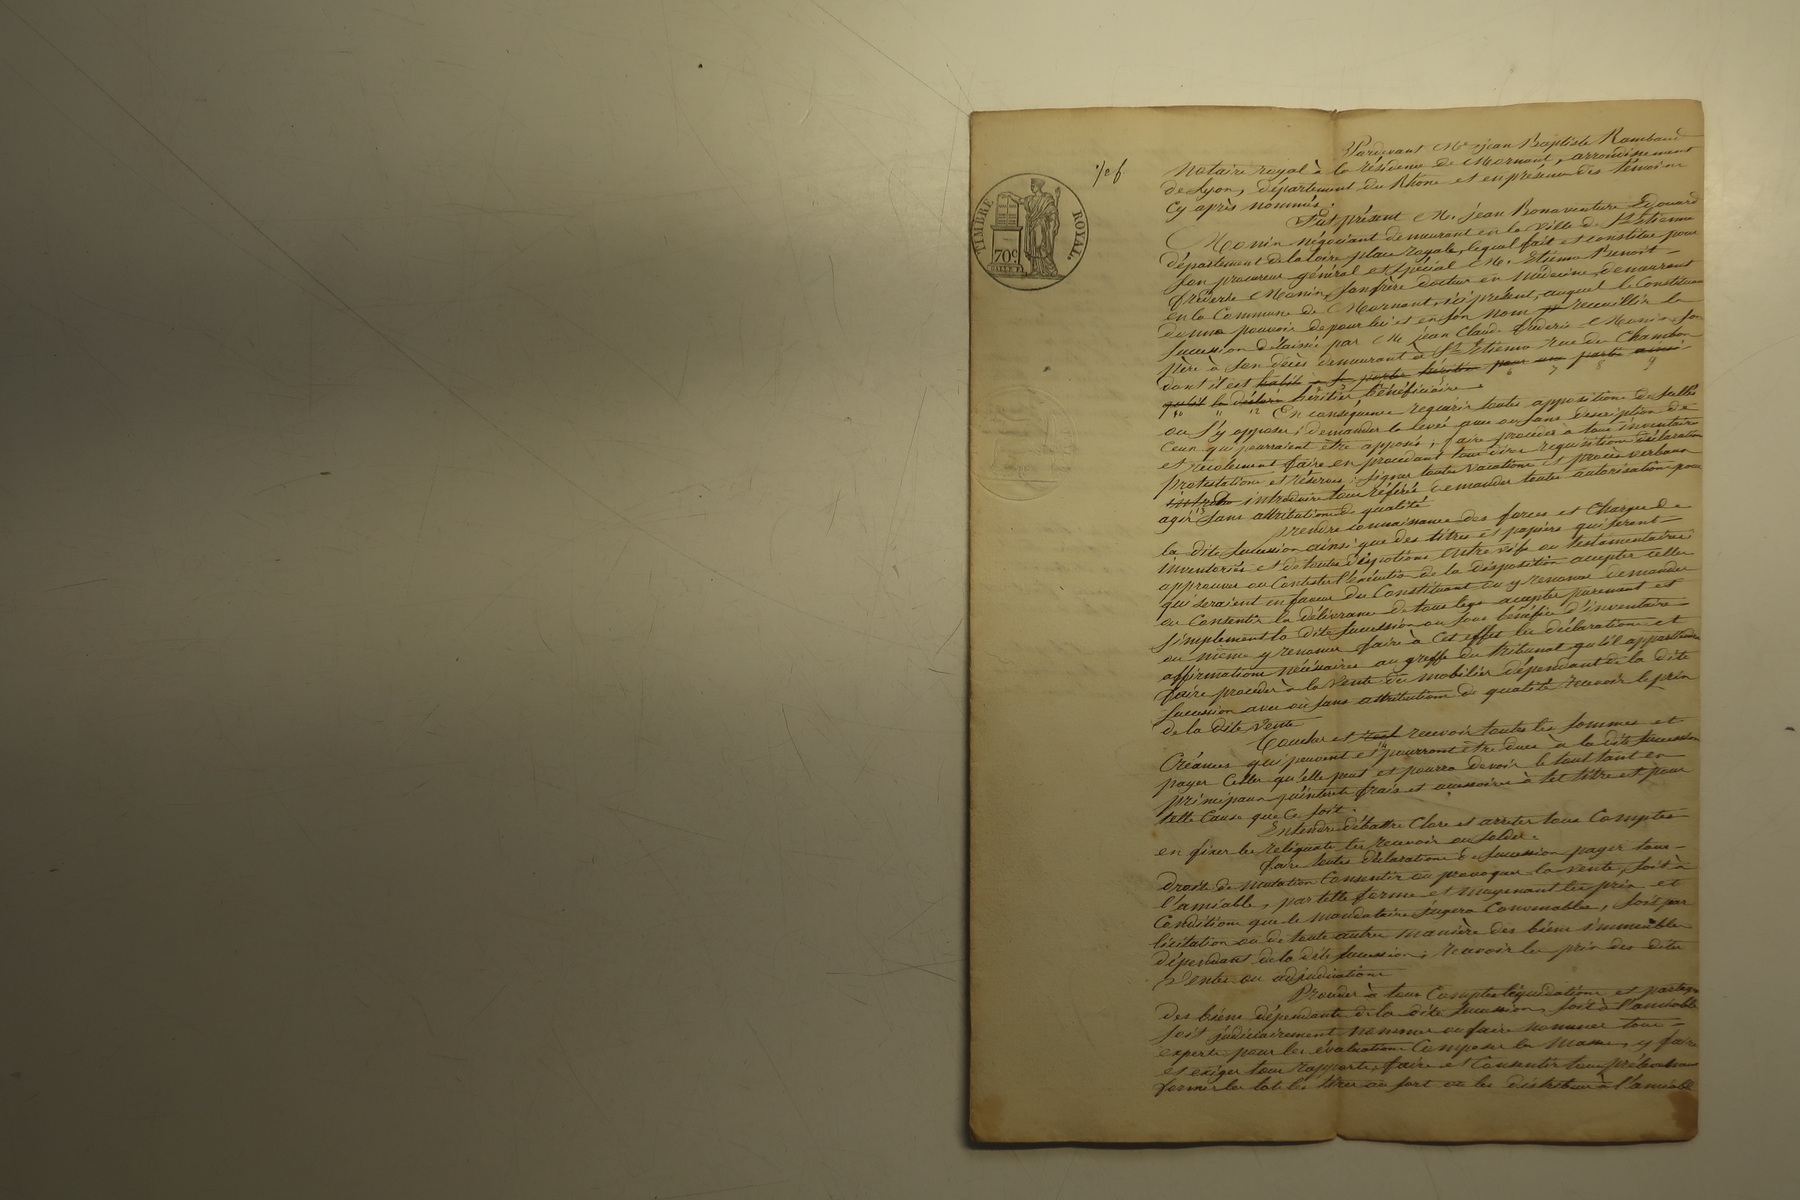 Pardevant Me jean Baptiste Rambaud
Notaire royal à la résidence de Mornant, arrondissement
de Lyon, département du Rhône et en présence des témoins
Cy après nommés.
Fut présent M. jean Bonaventure Edouard
Monin négociant demeurant en la ville de St Etienne
département de la loire place royale, lequel fait et constitue pour
son procureur général et spécial M. Etienne Benoit
fréderic Monin, son frère docteur en médecine, demeurant
en la Commune de Mornant, ici présent, auquel le Constituant
donne pouvoir de pour lui et en son nom recueillir la
succession délaissée par M jean Claude fréderic Monin son
père à son décès demeurant à St Etienne rue de Chambon
dont il est habile à se porter héritier pour une partie ainsi
6 7 8 9
qu'il le déclare héritier bénéficiaire
10 11 12 En conséquence requérir toutes appositions de scellés
ou s'y opposer; demander la levée avec ou sans description de
Ceux qui pourraient être apposés; faire procéder à tous inventaires
et recolement faire en procédant tous dires requisitions déclarations
protestations et réserves; signer toutes vacations et procès verbaux
introduire tous référés demander toute autorisation pour
agir sans attributions de qualité
prendre connaissance des forces et charges de
la dite succession ainsi que des titres et papiers qui seront
inventoriés et de toutes dispositions entre vifs ou testamentaires
approuver ou Contester l'exécution de la disposition accepter celles
qui seraient en faveur du Constituant ou y renoncer demander
ou Consentir la délivrance de tous legs accepter purement et
simplement la dite succession ou sous bénéfice d'inventaire
ou même y renoncer faire à Cet effet les déclarations et
affirmations nécéssaires au greffe du tribunal qu'il appartiendra
faire procéder à la vente du mobilier dépendant de la dite
succession avec ou sans attributions de qualité recevoir le prix
de la dite vente
Toucher et recevoir toutes les sommes et
Créances qui peuvent et pourront être dues à la dite succession
payer Celles qu'elle peut et pourra devoir le tout tant en
principaux qu'intérêts frais et accessoires à tel titre et pour
telle Cause que Ce soit.
Entendre débattre Clore et arrêter tous Comptes
en fixer les réliquats les recevoir ou solder.
faire toutes déclarations de succession payer tous
droits de mutation Consentir ou provoquer la vente, soit à
l'amiable, par telle forme et moyenant les prix et
Conditions que le mandataire jugera Convenables, soit par
licitation ou de toute autre manière des biens immeubles
dépendants de la dite succession; recevoir les prix des dites
ventes ou adjudications
Procéder à tous Comptes liquidations et partages
des biens dépendants de la dite succession, soit à l'amiable
soit judiciairement, nommer ou faire nommer tous
experts pour les évaluations Composer les masses, y faire
et exiger tous rapports, faire et Consentir tous prélèvemens
former les lots les tirer au sort ou les distribuer à l'amiable
TIMBRE ROYAL.
70c